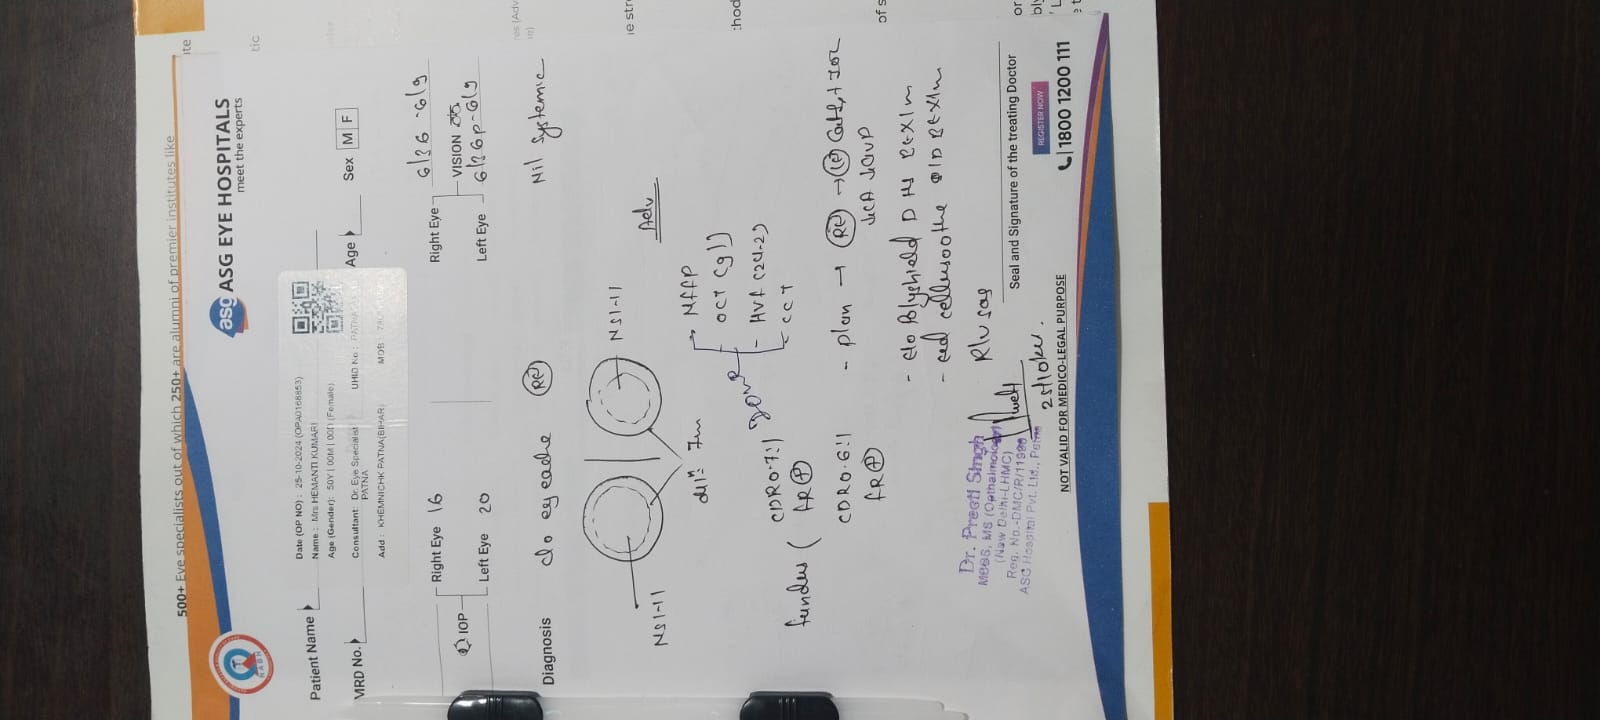 500+ Eye specialists out of which 250+ are alumni of premier institutes like
asg ASG EYE HOSPITALS
meet the experts
Patient Name
Date (OP NO) : 25-10-2024 (OPA0168853)
Name : Mrs HEMANTI KUMARI
Age (Gender): 50Y | 00M | 00D (Female)
Consultant: Dr. Eye Specialist
PATNA
UHID No :
Add : KHEMNICHK PATNA(BIHAR)
MOB :
MRD No.
Age
Sex M F
IOP
Right Eye 16
Left Eye 20
VISION
Right Eye 6/36 - 6/9
Left Eye 6/36p - 6/9
Diagnosis
c/o eyeache RE
Nil systemic
NS1-11
NS1-11
diln 7m
Adv
fundus
CDR 0.7:1
AR +
CDR 0.6:1
AR +
NFAP
- OCT
- HVF (24-2)
- CCT
- plan → RE → LE
- e/d Polyshield D HS BE X 1m
- eed cellusoothe QID BE X 1m
R/v sos
Dr. Preeti Singh
MBBS, MS (Opthalmology)
(New Delhi-LHMC)
Reg. No.-DMC/R/11986
ASG Hospital Pvt. Ltd., Patna
25/10/24.
Seal and Signature of the treating Doctor
NOT VALID FOR MEDICO-LEGAL PURPOSE
REGISTER NOW
1800 1200 111